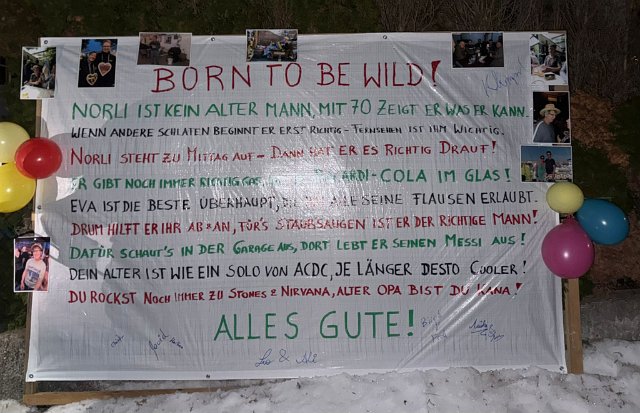 BORN TO BE WILD!
NORLI IST KEIN ALTER MANN, MIT 70 ZEIGT ER WAS ER KANN.
WENN ANDERE SCHLAFEN BEGINNT ER ERST RICHTIG - FERNSEHEN IST IHM WICHTIG.
NORLI STEHT ZU MITTAG AUF - DANN HAT ER ES RICHTIG DRAUF!
ER GIBT NOCH IMMER RICHTIG GAS ARDI-COLA IM GLAS!
EVA IST DIE BESTE ÜBERHAUPT, DIE IHM ALLE SEINE FLAUSEN ERLAUBT.
DRUM HILFT ER IHR AB & AN, FÜR'S STAUBSAUGEN IST ER DER RICHTIGE MANN!
DAFÜR SCHAUT'S IN DER GARAGE AUS, DORT LEBT ER SEINEN MESSI AUS!
DEIN ALTER IST WIE EIN SOLO VON ACDC, JE LÄNGER DESTO COOLER!
DU ROCKST NOCH IMMER ZU STONES & NIRVANA, ALTER OPA BIST DU KANA!
ALLES GUTE!